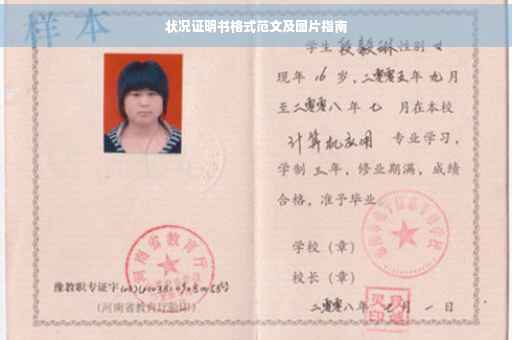 状况证明书格式范文及图片指南
样本
学生 段毅琳 性别 女
现年 16 岁，二零零五年 九 月
至二零零八年 七 月在本校
计算机应用 专业学习，
学制 三 年，修业期满，成绩
合格，准予毕业。
学校（章）
校长（章）
二零零八年 七 月 一 日
河南省教育厅
豫教职专证字
（河南省教育厅验印）